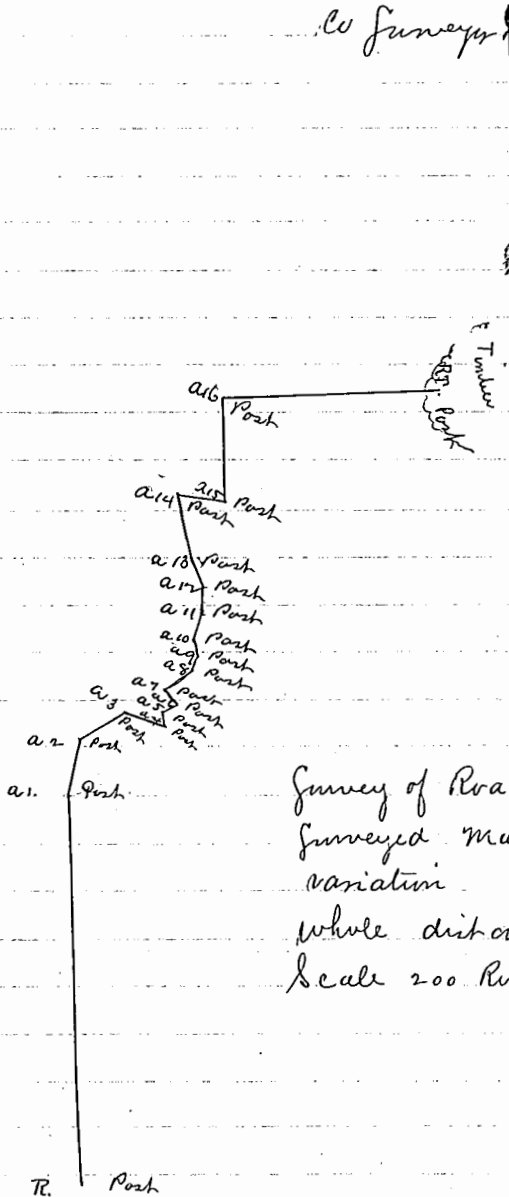 Co Surveyor
& Timber
R.T. Post
a16 Post
a14 Post a15 Post
a 13 Post
a 12 Post
a 11 Post
a 10 Post
a 9 Post
a 8 Post
a 7 Post
a 6 Post
a 5 Post
a 4 Post
a 3 Post
a 2 Post
a 1. Post
Survey of Roa
Surveyed Ma
variation
whole dista
Scale 200 Ro
R. Post